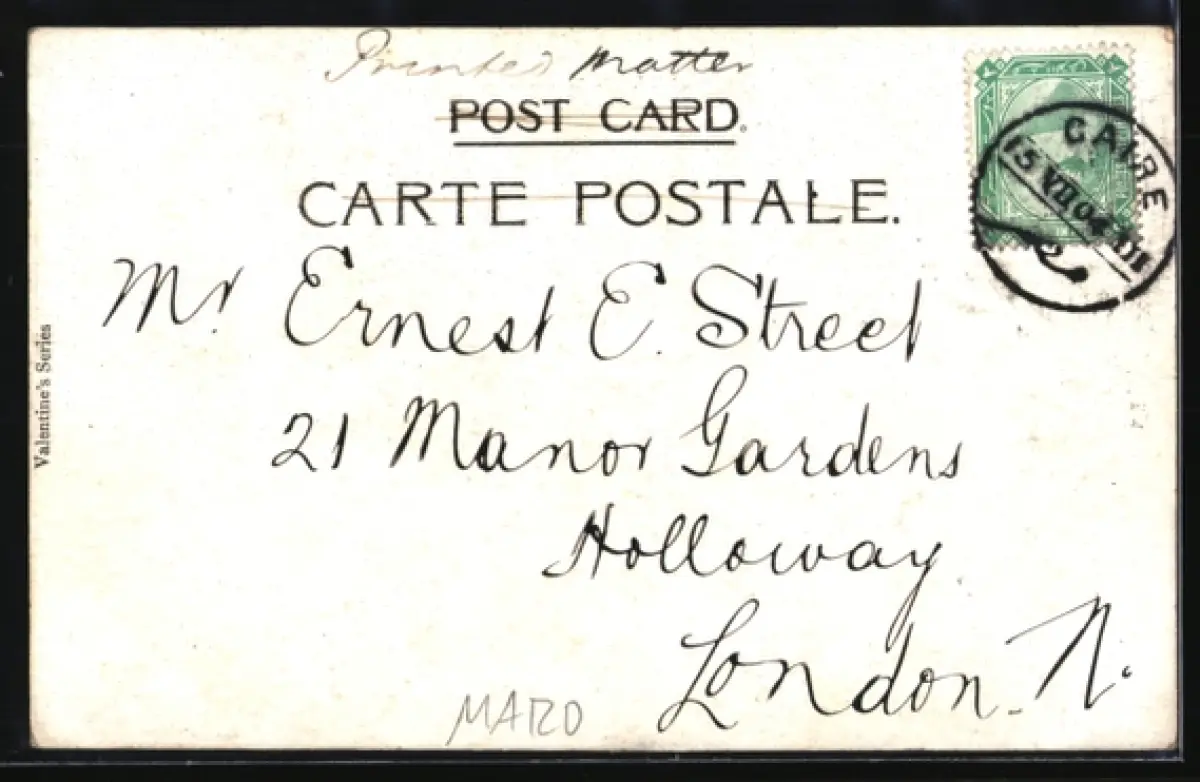 Printed Matter
POST CARD.
CARTE POSTALE.
CAIRE
15 VII 04
Mr Ernest E. Street
21 Manor Gardens
Holloway
London. N.
Valentine's Series
MARO